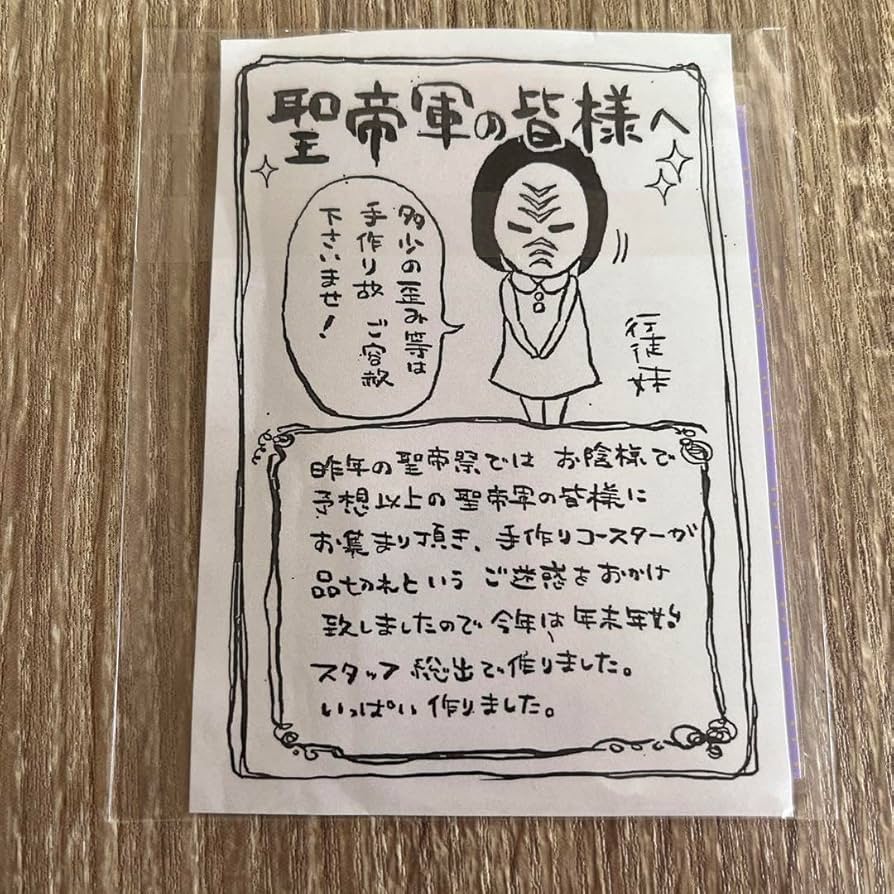 聖帝軍の皆様へ
多少の歪み等は
手作り故 ご容赦
下さいませ!
行徒妹
昨年の聖帝祭では お陰様で
予想以上の聖帝軍の皆様に
お集まり頂き、手作りコースターが
品切れという ご迷惑をおかけ
致しましたので今年は、年末年始
スタッフ総出で作りました。
いっぱい作りました。